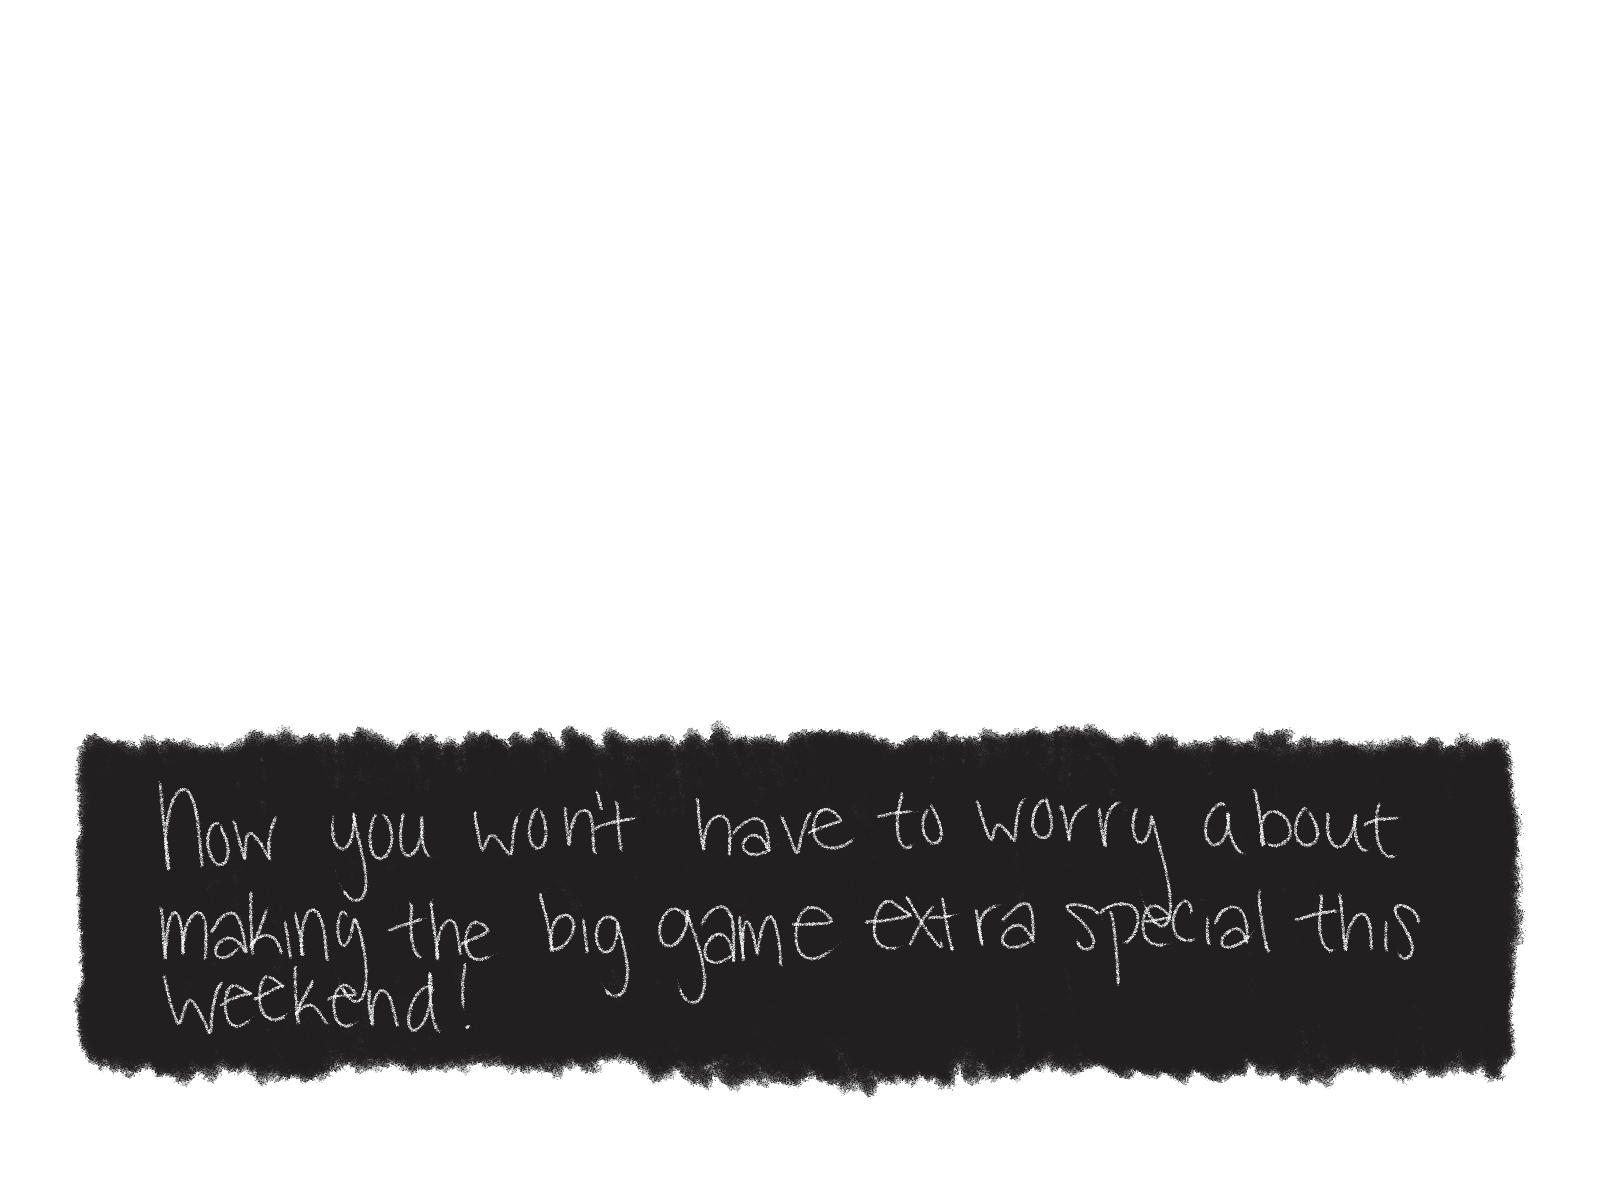 Now you won't have to worry about
making the big game extra special this
weekend!